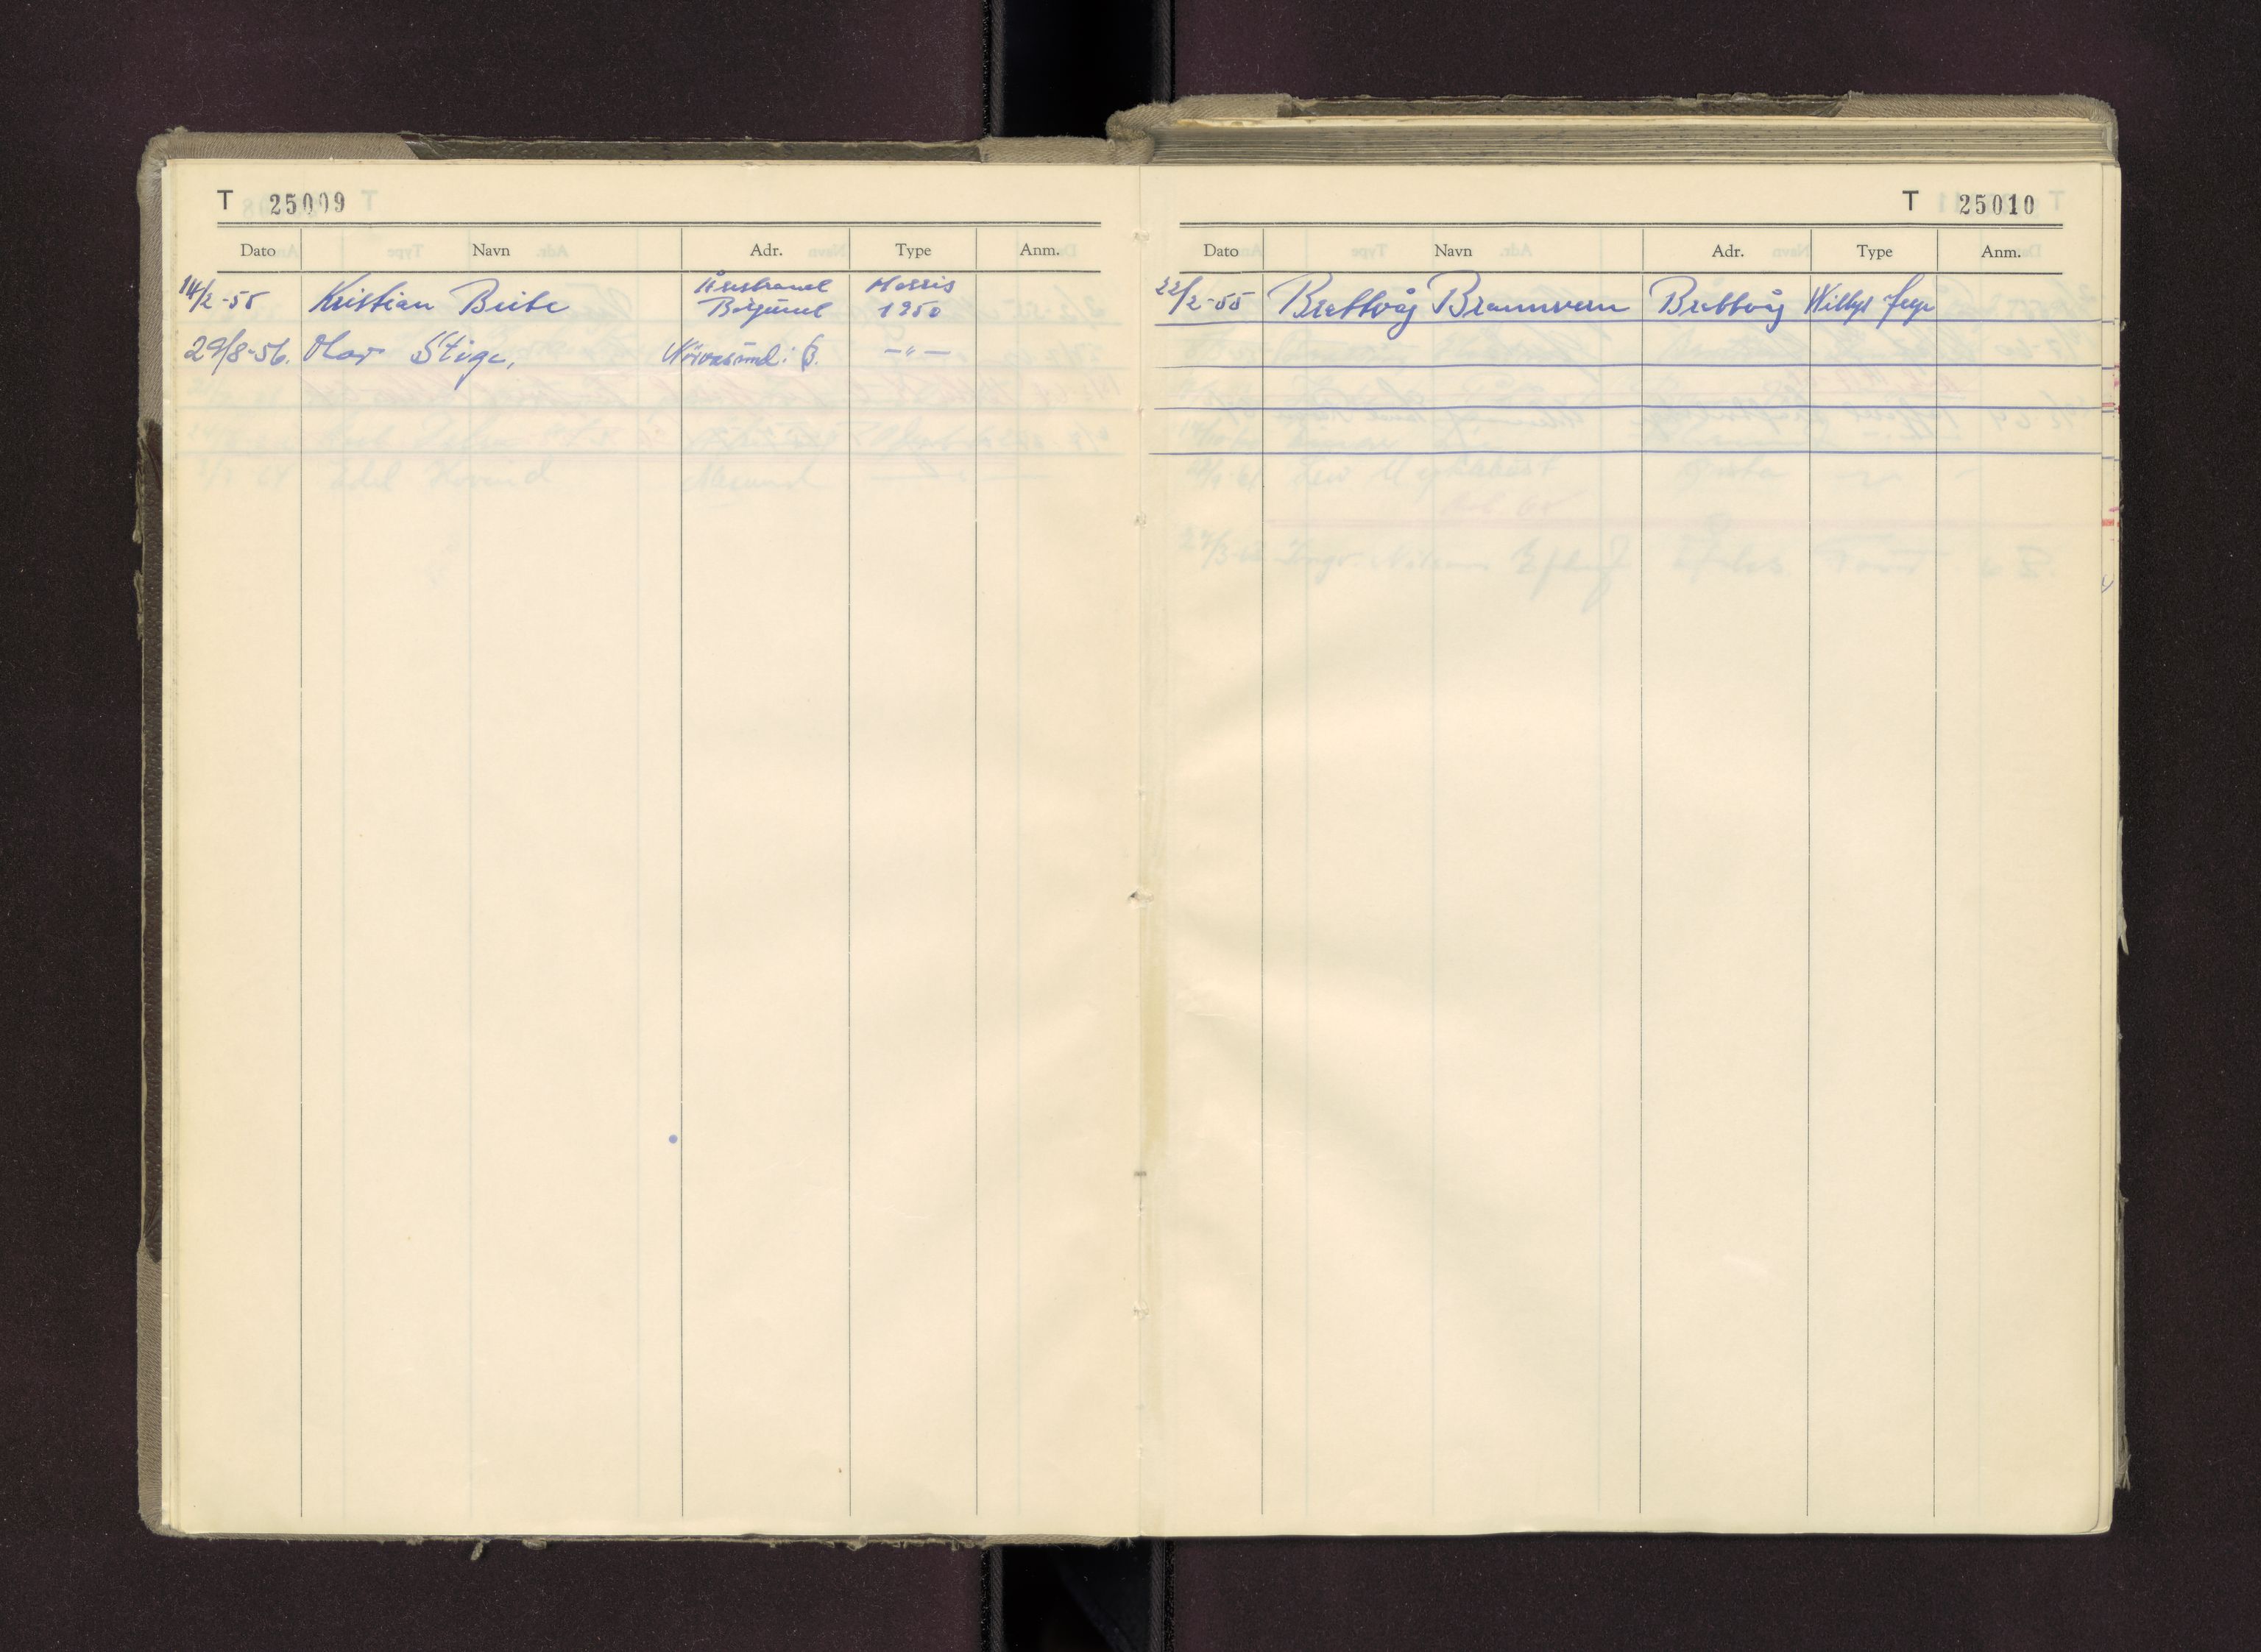 T 25009
Dato Navn Adr. Type Anm.
14/2-55 Kristian Beite Årestrand Morris
Borgund 1950
29/8-56. Olav Stige, Nörvasund: B. -"-
T 25010
Dato Navn Adr. Type Anm.
22/2-55 Brattvåg Brannvern Brattvåg Willys Jeep